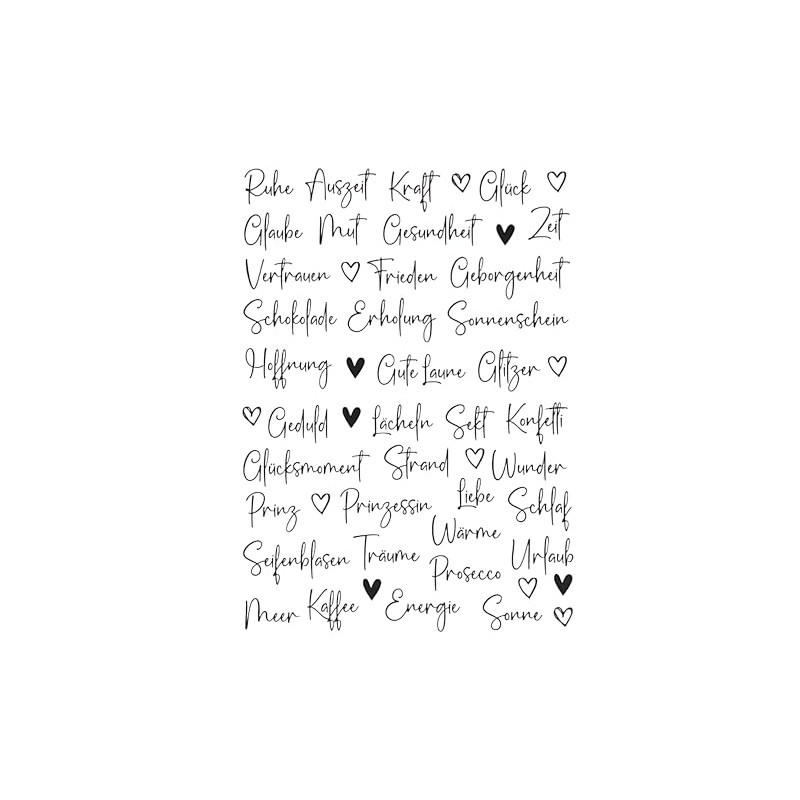 Ruhe Auszeit Kraft Glück
Glaube Mut Gesundheit Zeit
Vertrauen Frieden Geborgenheit
Schokolade Erholung Sonnenschein
Hoffnung Gute Laune Glitzer
Geduld Lächeln Sekt Konfetti
Glücksmoment Strand Wunder
Prinz Prinzessin Liebe Schlaf
Wärme
Seifenblasen Träume Prosecco Urlaub
Meer Kaffee Energie Sonne